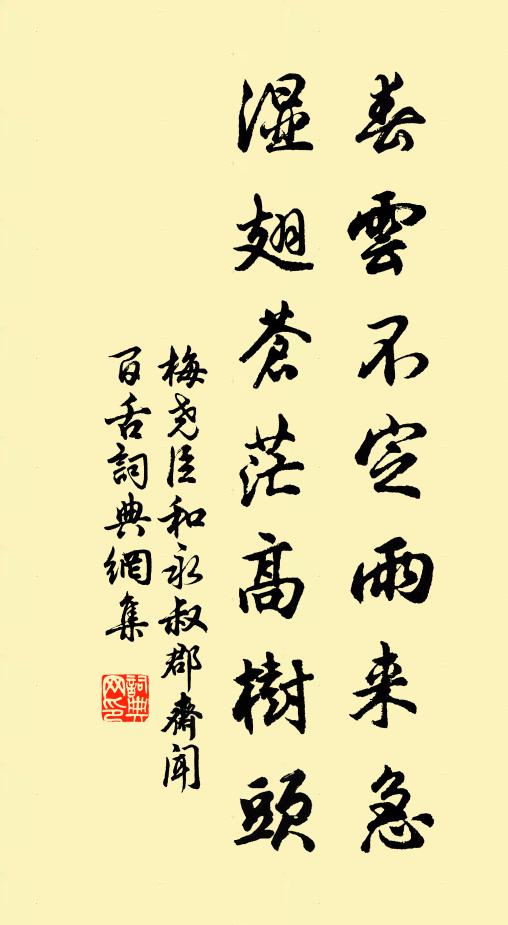 春雲不定雨来急
濕翅蒼茫高樹頭
梅堯臣和永叔郡齋聞
百舌詞典網集
詞典
网印